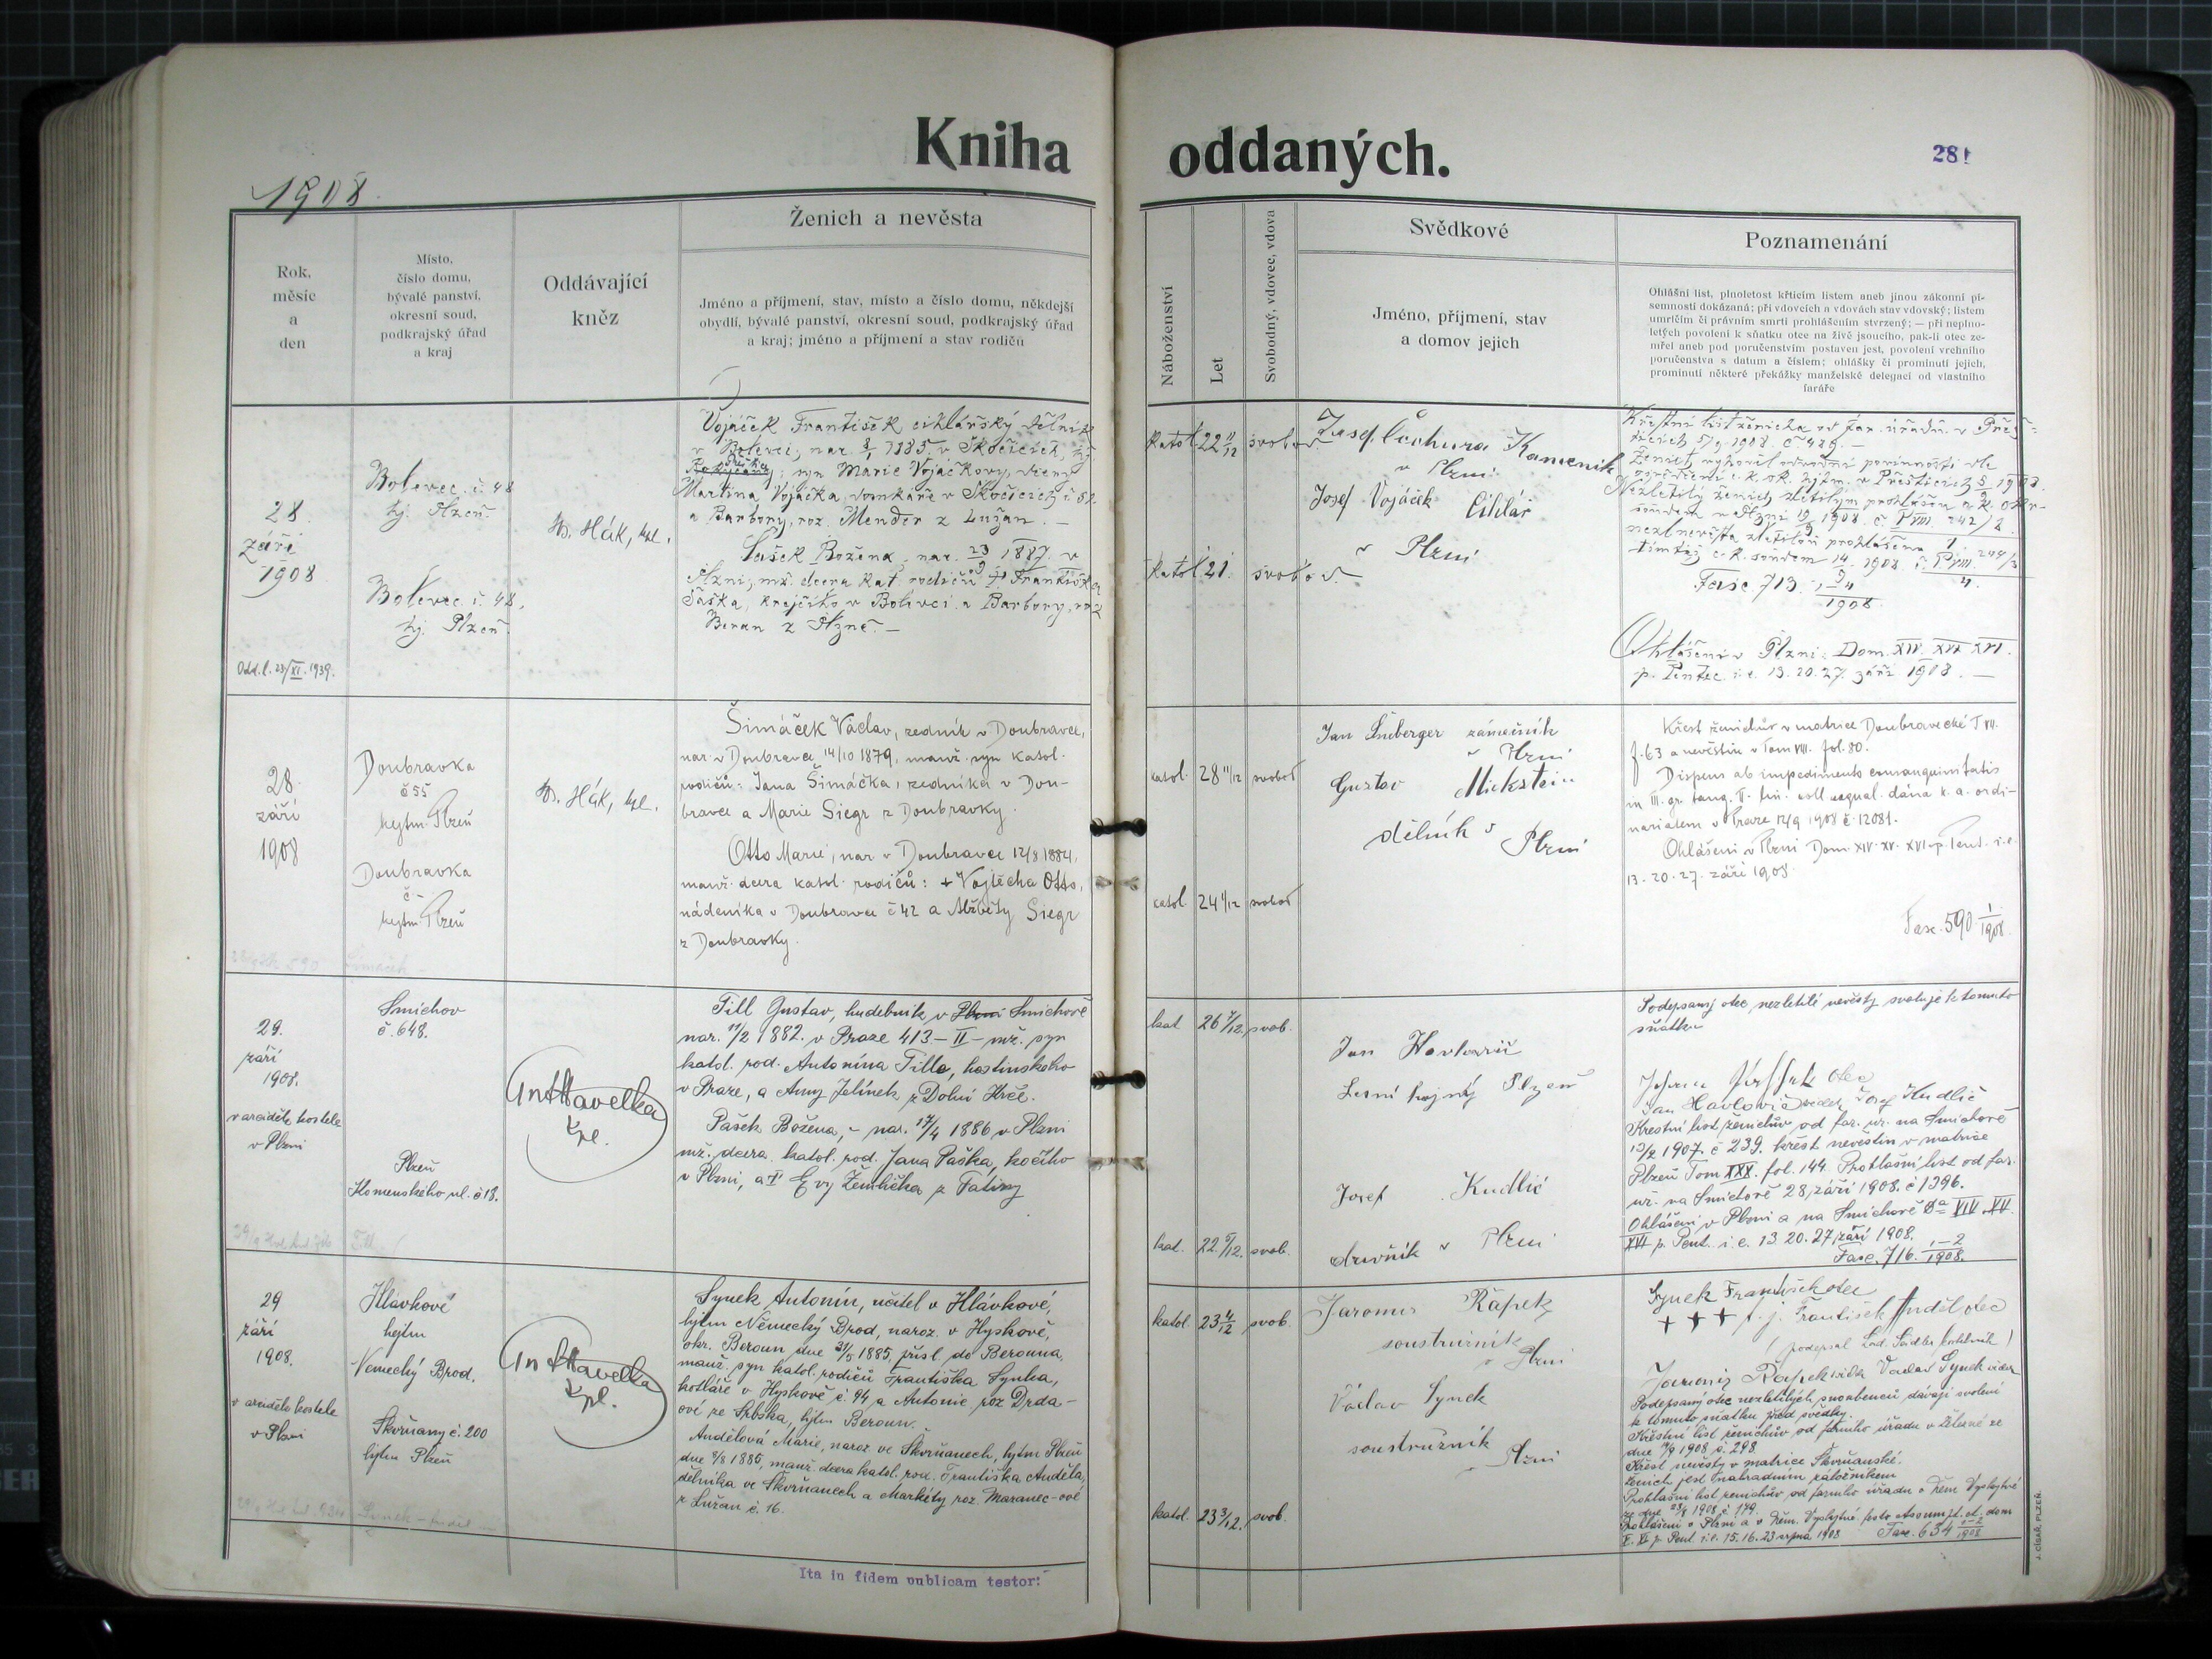 Kniha oddaných.
281
1908.
Ženich a nevěsta
Rok,
měsíc
a
den
Místo,
číslo domu,
bývalé panství,
okresní soud,
podkrajský úřad
a kraj
Oddávající
kněz
Jméno a příjmení, stav, místo a číslo domu, někdejší
obydlí, bývalé panství, okresní soud, podkrajský úřad
a kraj; jméno a příjmení a stav rodičů
Náboženství
Let
Svobodný, vdovec, vdova
Svědkové
Jméno, příjmení, stav
a domov jejich
Poznamenání
Ohlášní list, plnoletost křticím listem aneb jinou zákonní pí-
semností dokázaná; při vdovcích a vdovách stav vdovský; listem
umrlčím či právním smrti prohlášením stvrzený; — při neplno-
letých povolení k sňatku otce na živě jsoucího, pak-li otec ze-
mřel aneb pod poručenstvím postaven jest, povolení vrchního
poručenstva s datum a číslem; ohlášky či prominutí jejich,
prominutí některé překážky manželské delegací od vlastního
faráře
28.
září
1908
Odd. l. 23/XI. 1939.
Bolevec č. 48
hj. Plzeň.
Bolevec č. 48,
hj. Plzeň.
Hák, kpl.
Vojáček František cihlářský dělník
v Bolevci, nar. 1885. v Skočicích, hj.
syn Marie Vojáčkovy, dcery
Martina Vojáčka, domkáře v Skočicích č. 52
a Barbory, roz. Mender z Lužan. —
Šašek Božena, nar. 23/9 1887. v
Plzni, mž. dcera kat. rodičů † Františka
Šaška, krejčího v Bolevci a Barbory, roz
Beran z Plzně. —
katol 22 11/12 svobod.
katol 21. svobod.
Josef Čechura Kameník
v Plzni
Josef Vojáček Cihlář
v Plzni
Fasc. 713. 1908.
Ohlášeni v Plzni: Dom. XIV. XV. XVI.
p. Pentec. i. e. 13. 20. 27. září 1908. —
28.
září
1908
Doubravka
č 55
hejtm. Plzeň
Doubravka
č –
hejtm. Plzeň
Hák, kpl.
Šimáček Václav, zedník v Doubravce,
nar. v Doubravce 14/10 1879, manž. syn katol.
rodičů: Jana Šimáčka, zedníka v Dou-
bravce a Marie Siegr z Doubravky.
Otto Marie, nar v Doubravce 12/8 1884,
manž. dcera katol. rodičů: + Vojtěcha Otto,
nádeníka v Doubravce č 42 a Alžběty Siegr
z Doubravky.
katol. 28 11/12 svobod
katol 24 1/12 svobod
Jan zámečník
v Plzni
Gustav Mickstein
dělník v Plzni
Křest ženichův v matrice Doubravecké T VII.
f. 63 a nevěstin v Tom VIII. fol. 80.
Dispens ab impedimento consanguinitatis
in III. gr. tang. II. lin. coll aequal. dána k. a. ordi-
nariatem v Praze 12/9 1908 č. 12081.
Ohlášeni v Plzni Dom. XIV. XV. XVI. p. Pent. i. e.
13. 20. 27. září 1908.
Fasc. 590 1/1908.
29.
září
1908.
v arciděk. kostele
v Plzni
Smíchov
č. 648.
Plzeň
Komenského ul. č 18.
Ant Havelka
kpl.
Till Gustav, hudebník v Plzni Smíchově
nar. 11/2 1882. v Praze 413 – II – mž. syn
katol. rod. Antonína Tilla, hostinského
v Praze, a Anny Jelínek z Dolní Krče.
Pašek Božena, – nar. 17/4 1886 v Plzni
mž. dcera katol. rod. Jana Paška, kočího
v Plzni, a † Evy Žemlička z
kat 26 7/12 svob.
kat. 22 5/12. svob.
Jan Havlovič
Lesní hajný Plzeň
Josef Kudlič
v Plzni
Podepsaný otec nezletilé nevěsty svoluje k tomuto
sňatku
otec
Jan Havlovič svědek Josef Kudlič
Křestní list ženichův od far. úř. na Smíchově
13/2 1907. č 239. křest nevěstin v matrice
Plzeň Tom XXX. fol. 144. Prohlašní list od far.
úř. na Smíchově 28. září 1908. č 1396.
Ohlášeni v Plzni a na Smíchově Da XIV. XV.
XVI p. Pent. i. e. 13. 20. 27. září 1908.
Fasc. 716. 1–2/1908.
29
září
1908.
v arciděk. kostele
v Plzni
Hlávkově
hejtm
Německý Brod.
Škvrňany č. 200
hejtm Plzeň
Ant Havelka
kpl.
Synek Antonín, učitel v Hlávkově,
hejtm Německý Brod, naroz. v Hyskově,
okr. Beroun dne 21/5 1885, přísl. do Berouna,
manž. syn katol. rodičů Františka Synka,
kotláře v Hyskově č. 94 a Antonie roz Drda-
ové ze Srbska, hejtm Beroun.
Andělová Marie, naroz ve Škvrňanech, hejtm Plzeň
dne 1885, manž. dcera katol. rod. Františka Anděla,
dělníka ve Škvrňanech a Markéty roz. Maranec-ové
z Lužan č. 16.
katol. 23 4/12 svob.
katol. 23 3/12. svob.
Jaromír Řápek
soustružník
v Plzni
Václav Synek
soustružník
Plzni
Synek František otec
+ + + t. j. František Anděl otec
Jaromír Řápek svědek Václav Synek svědek
Podepsaný otec nezletilých snoubenců dávají svolení
k tomuto sňatku před svědky.
dne 1908 č. 298.
Křest nevěsty v matrice Škvrňanské.
Ženich jest náhradním záložníkem
p. Pent. i. e. 15. 16. 23 srpna 1908 Fasc. 634 1–2/1908
Ita in fidem publicam testor:
J. CÍSAŘ, PLZEŇ.